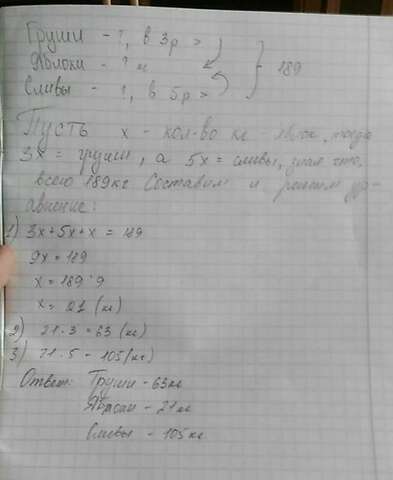 Груши - ?, в 3р >
Яблоки - ? кг } 189
Сливы - ?, в 5р >
Пусть x - кол-во кг яблок, тогда
3x = груши, а 5x = сливы, зная что,
всего 189кг Составим и решим ур-
авнение:
1) 3x+5x+x = 189
9x = 189
x = 189:9
x = 21 (кг)
2) 21·3 = 63 (кг)
3) 21·5 = 105 (кг)
Ответ: Груши - 63кг
Яблоки - 21кг
Сливы - 105кг